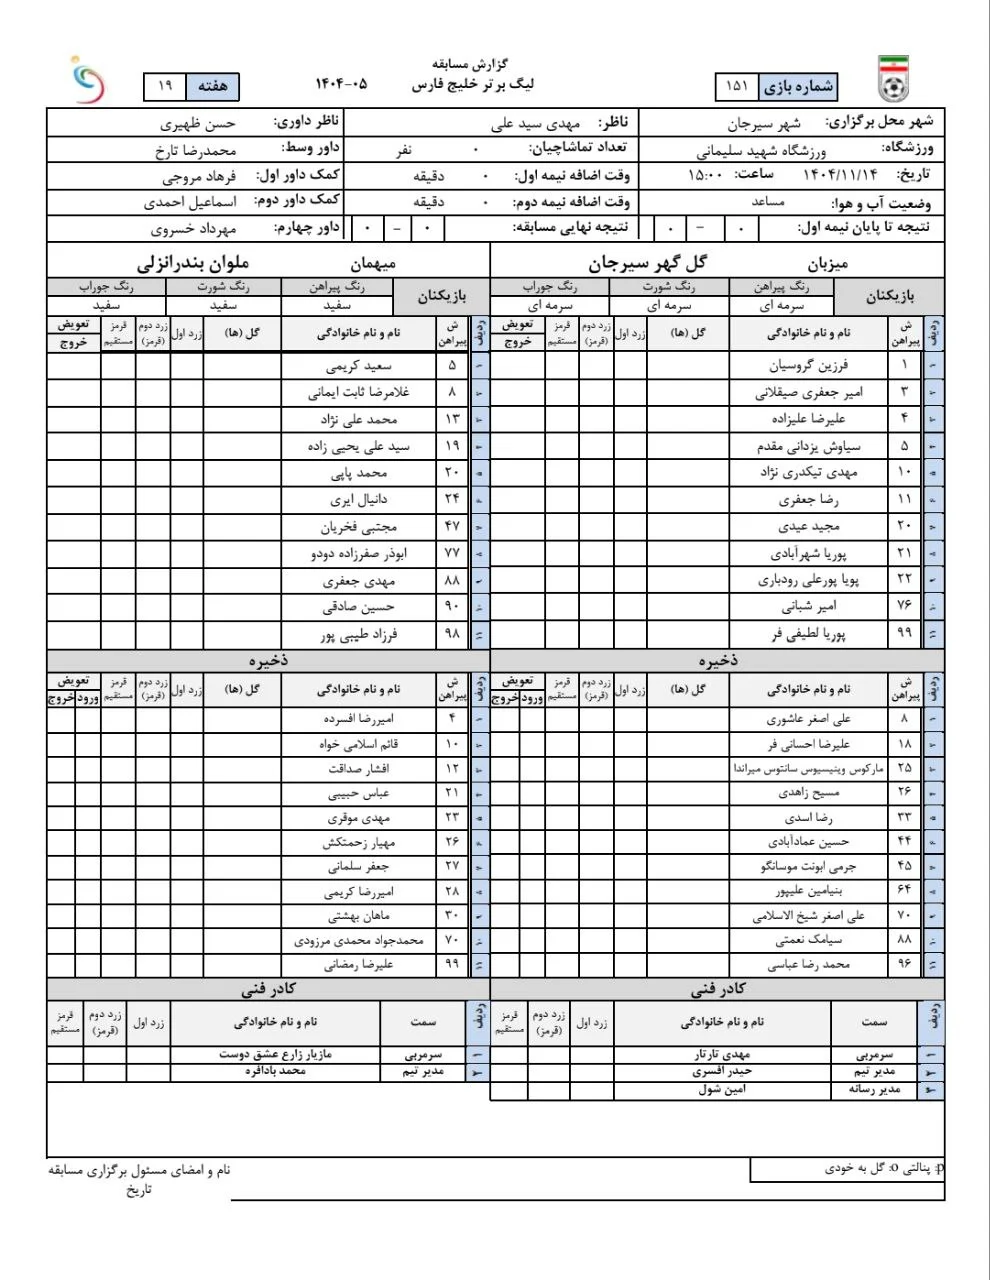 گزارش مسابقه
لیگ برتر خلیج فارس
۱۴۰۴-۰۵
شماره بازی ۱۵۱
هفته ۱۹
شهر محل برگزاری: شهر سیرجان
ناظر: مهدی سید علی
ناظر داوری: حسن ظهیری
ورزشگاه: ورزشگاه شهید سلیمانی
تعداد تماشاچیان: ۰ نفر
داور وسط: محمدرضا تارخ
تاریخ: ۱۴۰۴/۱۱/۱۴ ساعت: ۱۵:۰۰
وقت اضافه نیمه اول: ۰ دقیقه
کمک داور اول: فرهاد مروجی
وضعیت آب و هوا: مساعد
وقت اضافه نیمه دوم: ۰ دقیقه
کمک داور دوم: اسماعیل احمدی
نتیجه تا پایان نیمه اول: ۰ – ۰
نتیجه نهایی مسابقه: ۰ – ۰
داور چهارم: مهرداد خسروی
میزبان گل گهر سیرجان
بازیکنان رنگ پیراهن رنگ شورت رنگ جوراب
سرمه ای سرمه ای سرمه ای
ردیف ش پیراهن نام و نام خانوادگی گل (ها) زرد اول زرد دوم (قرمز) قرمز مستقیم تعویض خروج
۱ ۱ فرزین گروسیان
۲ ۳ امیر جعفری صیقلانی
۳ ۴ علیرضا علیزاده
۴ ۵ سیاوش یزدانی مقدم
۵ ۱۰ مهدی تیکدری نژاد
۶ ۱۱ رضا جعفری
۷ ۲۰ مجید عیدی
۸ ۲۱ پوریا شهرآبادی
۹ ۲۲ پویا پورعلی رودباری
۱۰ ۷۶ امیر شبانی
۱۱ ۹۹ پوریا لطیفی فر
ذخیره
ردیف ش پیراهن نام و نام خانوادگی گل (ها) زرد اول زرد دوم (قرمز) قرمز مستقیم تعویض ورود خروج
۱ ۸ علی اصغر عاشوری
۲ ۱۸ علیرضا احسانی فر
۳ ۲۵ مارکوس وینیسیوس سانتوس میراندا
۴ ۲۶ مسیح زاهدی
۵ ۳۳ رضا اسدی
۶ ۴۴ حسین عمادآبادی
۷ ۴۵ جرمی ابونت موسانگو
۸ ۶۴ بنیامین علیپور
۹ ۷۰ علی اصغر شیخ الاسلامی
۱۰ ۸۸ سیامک نعمتی
۱۱ ۹۶ محمد رضا عباسی
کادر فنی
ردیف سمت نام و نام خانوادگی زرد اول زرد دوم (قرمز) قرمز مستقیم
۱ سرمربی مهدی تارتار
۲ مدیر تیم حیدر افسری
۳ مدیر رسانه امین شول
میهمان ملوان بندرانزلی
بازیکنان رنگ پیراهن رنگ شورت رنگ جوراب
سفید سفید سفید
ردیف ش پیراهن نام و نام خانوادگی گل (ها) زرد اول زرد دوم (قرمز) قرمز مستقیم تعویض خروج
۱ ۵ سعید کریمی
۲ ۸ غلامرضا ثابت ایمانی
۳ ۱۳ محمد علی نژاد
۴ ۱۹ سید علی یحیی زاده
۵ ۲۰ محمد پاپی
۶ ۲۴ دانیال ایری
۷ ۴۷ مجتبی فخریان
۸ ۷۷ ابوذر صفرزاده دودو
۹ ۸۸ مهدی جعفری
۱۰ ۹۰ حسین صادقی
۱۱ ۹۸ فرزاد طیبی پور
ذخیره
ردیف ش پیراهن نام و نام خانوادگی گل (ها) زرد اول زرد دوم (قرمز) قرمز مستقیم تعویض ورود خروج
۱ ۴ امیررضا افسرده
۲ ۱۰ قائم اسلامی خواه
۳ ۱۲ افشار صداقت
۴ ۲۱ عباس حبیبی
۵ ۲۳ مهدی موقری
۶ ۲۶ مهیار زحمتکش
۷ ۲۷ جعفر سلمانی
۸ ۲۸ امیررضا کریمی
۹ ۳۰ ماهان بهشتی
۱۰ ۷۰ محمدجواد محمدی مرزودی
۱۱ ۹۹ علیرضا رمضانی
کادر فنی
ردیف سمت نام و نام خانوادگی زرد اول زرد دوم (قرمز) قرمز مستقیم
۱ سرمربی مازیار زارع عشق دوست
۲ مدیر تیم محمد بادافره
p: پنالتی o: گل به خودی
نام و امضای مسئول برگزاری مسابقه
تاریخ